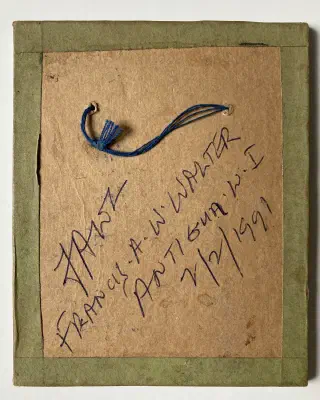 FAWZ
FRANCIS.A.W.WALTER
ANTIGUA.W.I
2/2/1991